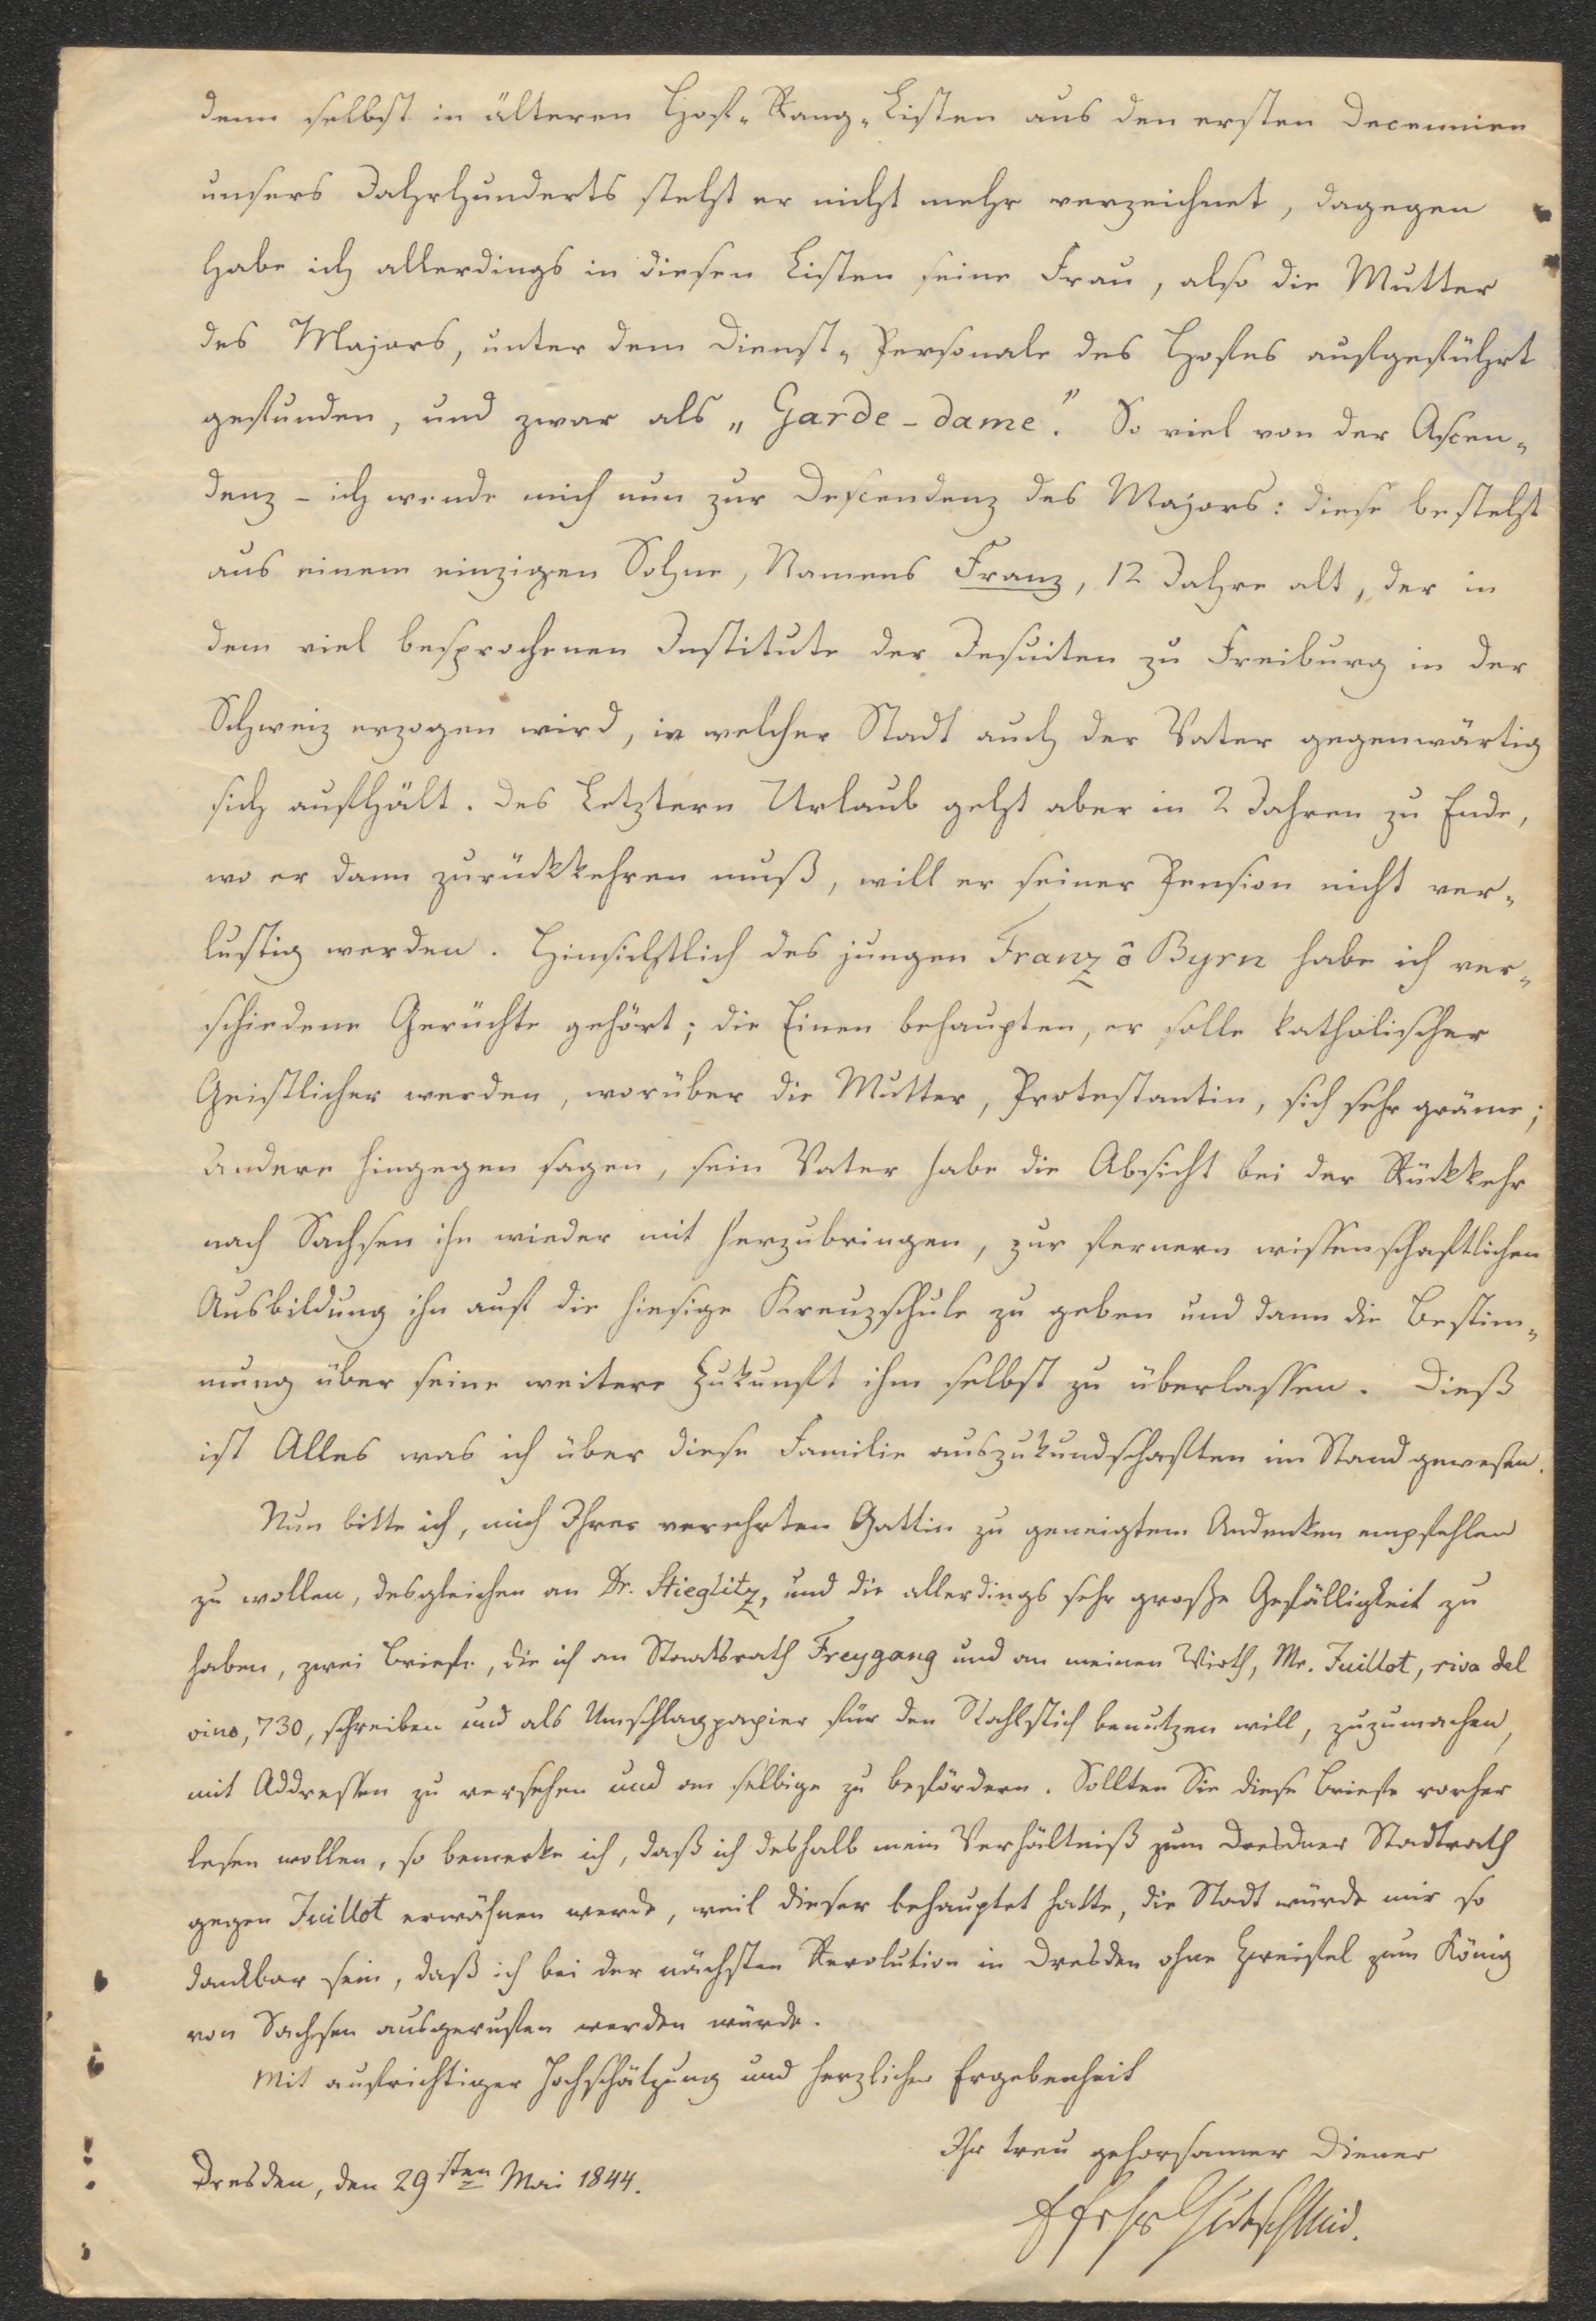 denn selbst in älteren Hof-Rang-Listen aus den ersten Decennien
unsers Jahrhunderts steht er nicht mehr verzeichnet, dagegen
habe ich allerdings in diesen Listen seine Frau, also die Mutter
des Majors, unter dem Dienst-Personale des Hofes aufgeführt
gefunden, und zwar als „Garde-dame". So viel von der Ascen-
denz – ich wende mich nun zur Descendenz des Majors: diese besteht
aus einem einzigen Sohne, Namens Franz, 12 Jahre alt, der in
dem viel besprochenen Institute der Jesuiten zu Freiburg in der
Schweiz erzogen wird, in welcher Stadt auch der Vater gegenwärtig
sich aufhält. Des Letztern Urlaub geht aber in 2 Jahren zu Ende,
wo er dann zurückkehren muß, will er seiner Pension nicht ver-
lustig werden. Hinsichtlich des jungen Franz ô Byrn habe ich ver-
schiedene Gerüchte gehört; die Einen behaupten, er solle katholischer
Geistlicher werden, worüber die Mutter, Protestantin, sich sehr gräme;
Andere hingegen sagen, sein Vater habe die Absicht bei der Rückkehr
nach Sachsen ihn wieder mit herzubringen, zur fernern wissenschaftlichen
Ausbildung ihn auf die hiesige Kreuzschule zu geben und dann die Bestim-
mung über seine weitere Zukunft ihm selbst zu überlassen. Dieß
ist Alles was ich über diese Familie auszukundschaften im Stand gewesen.
Nun bitte ich, mich Ihrer verehrten Gattin zu geneigtem Andenken empfehlen
zu wollen, desgleichen an Dr. Stieglitz, und die allerdings sehr große Gefälligkeit zu
haben, zwei Briefe, die ich an Staatsrath Freygang und an meinen Wirth, Mr. Juillot, riva del
vino, 730, schreiben und als Umschlagpapier für den Stahlstich benutzen will, zuzumachen,
mit Addressen zu versehen und an selbige zu befördern. Sollten Sie diese Briefe vorher
lesen wollen, so bemerke ich, daß ich deshalb mein Verhältniß zum Dresdner Stadtrath
gegen Juillot erwähnen werde, weil dieser behauptet hatte, die Stadt würde mir so
dankbar sein, daß ich bei der nächsten Revolution in Dresden ohne Zweifel zum König
von Sachsen ausgerufen werden würde.
Mit aufrichtiger Hochschätzung und herzlicher Ergebenheit
Ihr treu gehorsamer Diener
Dresden, den 29sten Mai 1844.
Gutschmid.